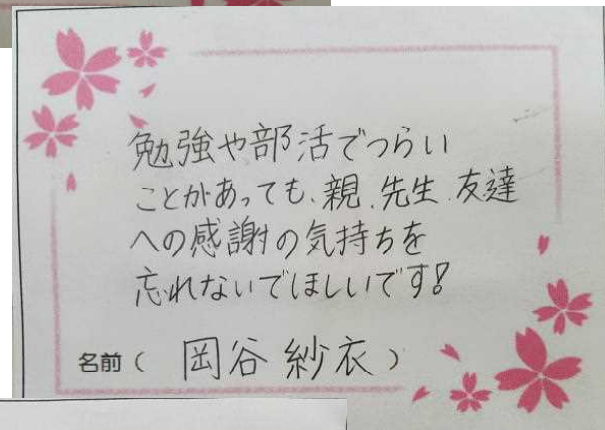 勉強や部活でつらい
ことがあっても、親、先生、友達
への感謝の気持ちを
忘れないでほしいです!
名前( 岡谷 紗衣 )